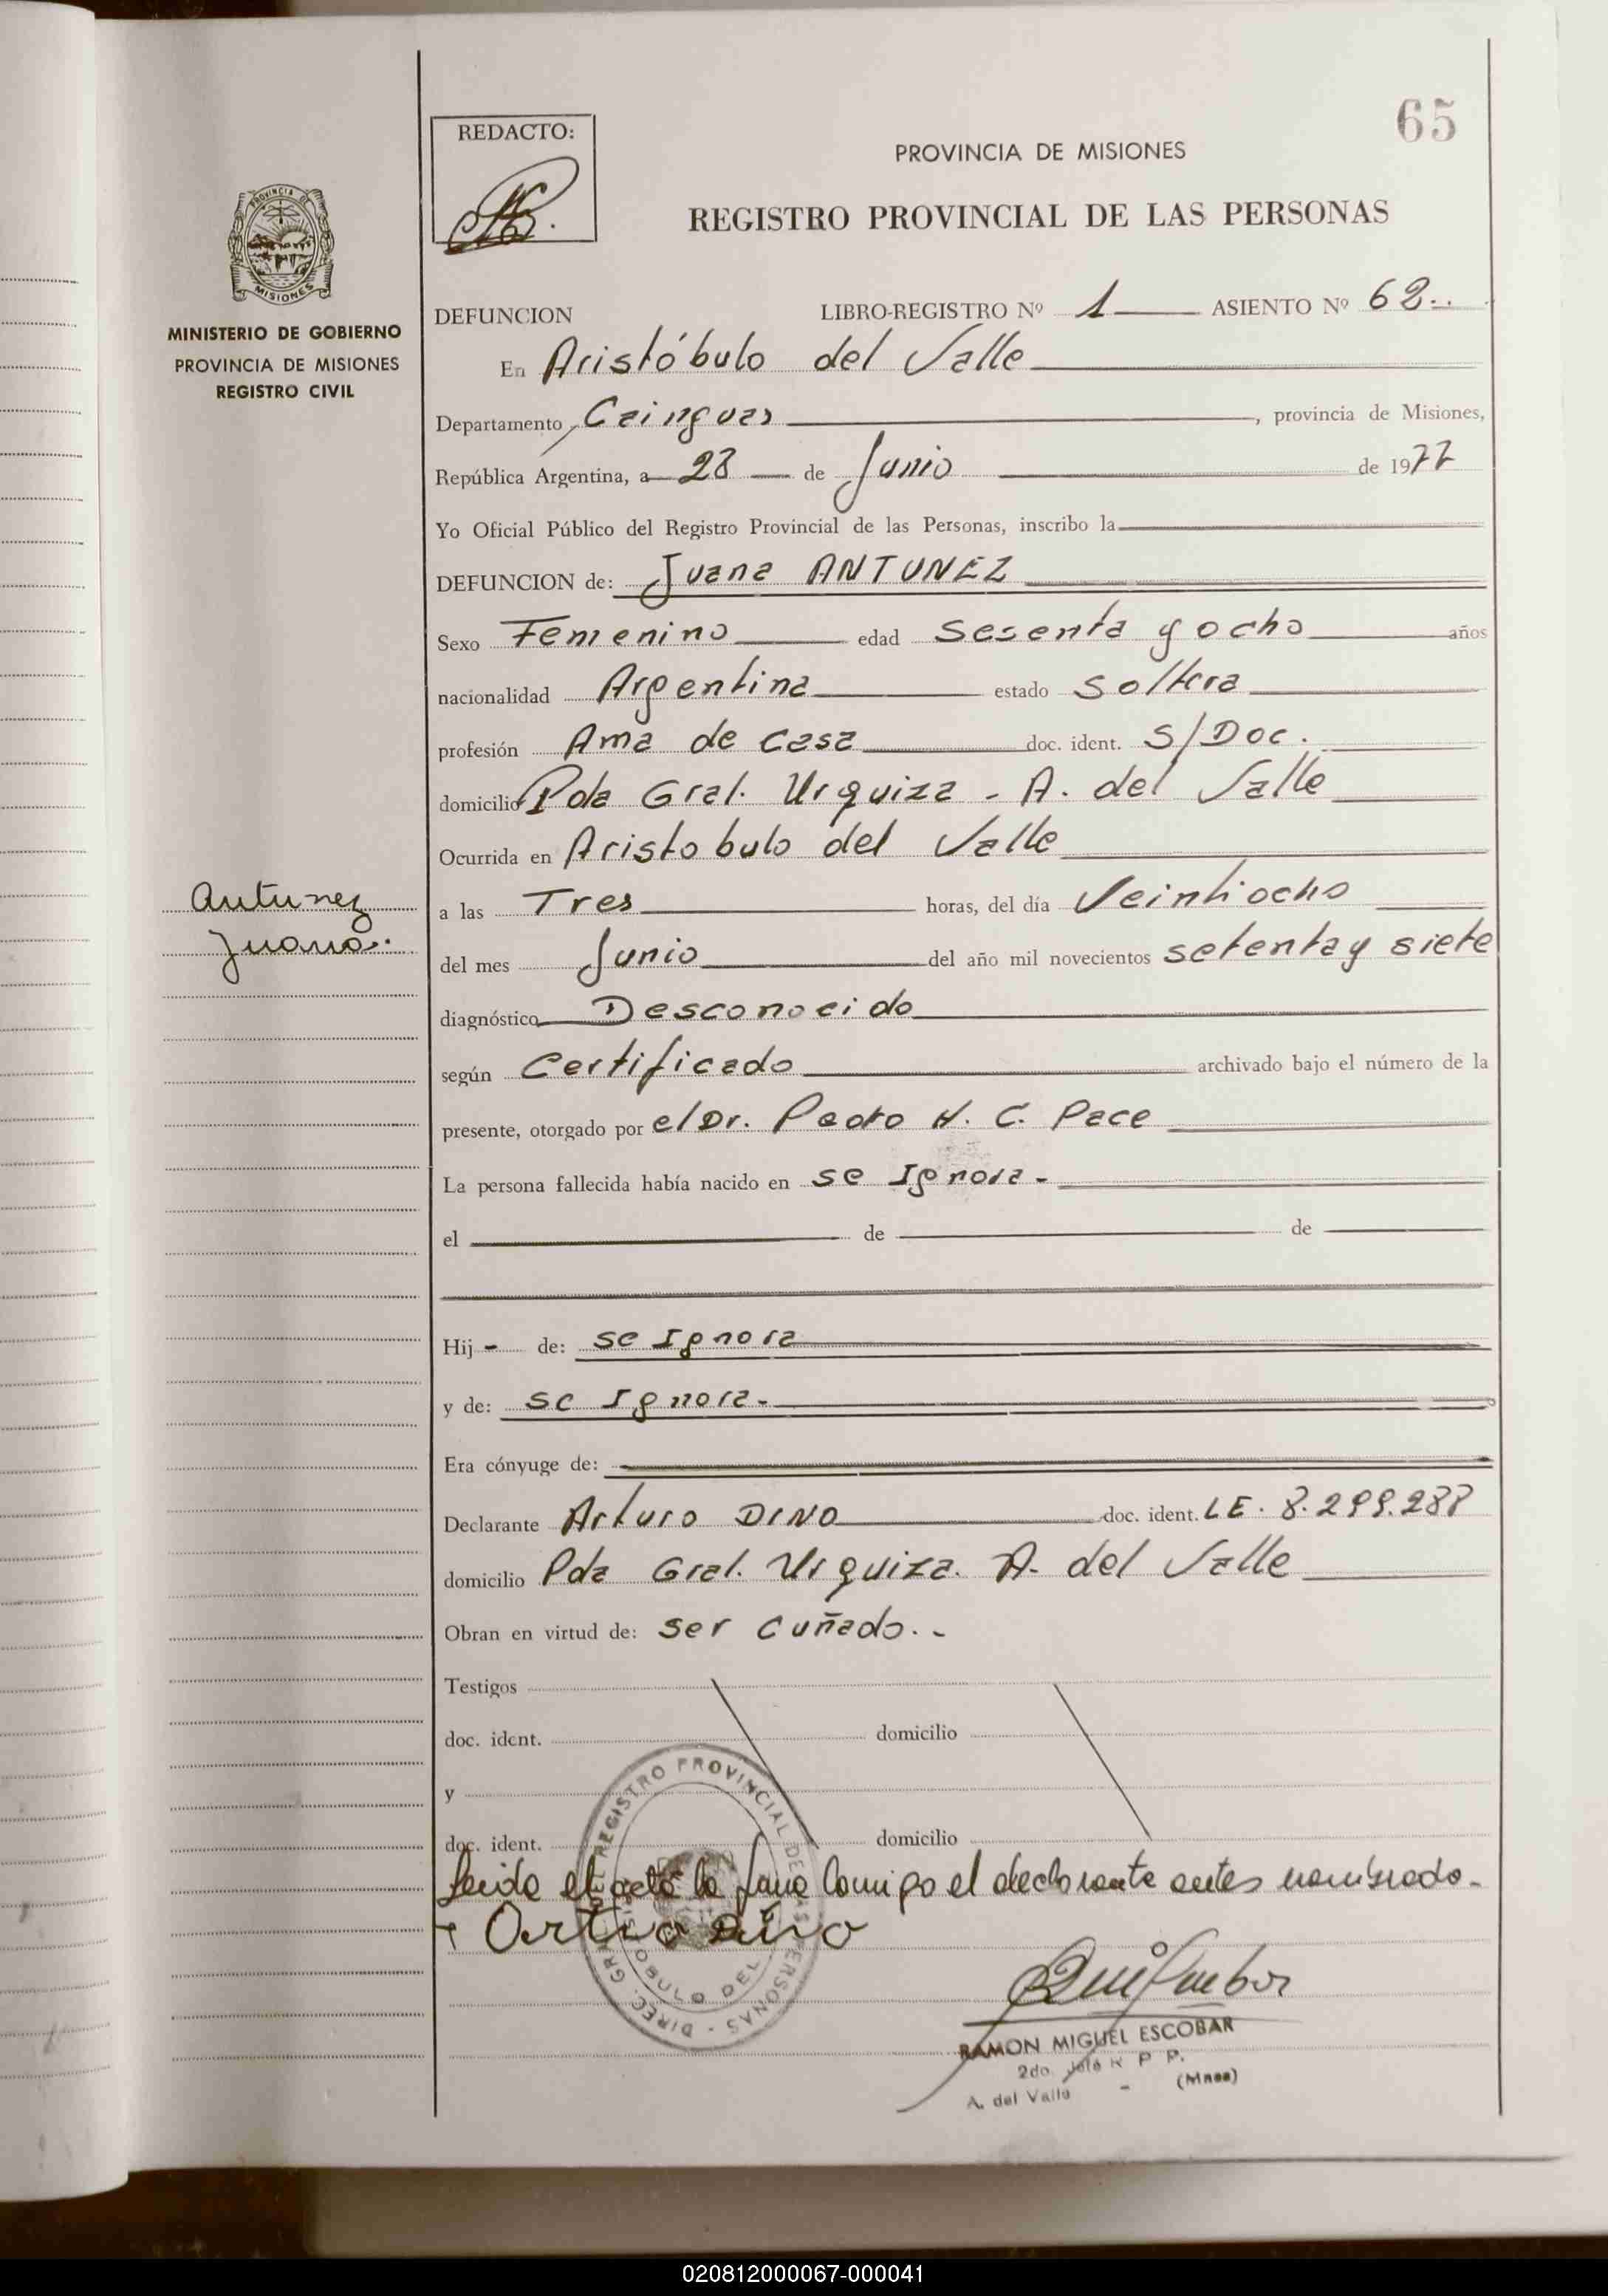 65
REDACTO:
PROVINCIA DE MISIONES
REGISTRO PROVINCIAL DE LAS PERSONAS
PROVINCIA DE
MISIONES
MINISTERIO DE GOBIERNO
PROVINCIA DE MISIONES
REGISTRO CIVIL
DEFUNCION LIBRO-REGISTRO Nº 1 ASIENTO Nº 62..
En Aristóbulo del Valle
Departamento Cainguas, provincia de Misiones,
República Argentina, a 28 de Junio de 1977
Yo Oficial Público del Registro Provincial de las Personas, inscribo la
DEFUNCION de: Juana ANTUNEZ
Sexo Femenino edad Sesenta y ocho años
nacionalidad Argentina estado Soltera
profesión Ama de casa doc. ident. S/Doc.
domicilio Pda Gral. Urquiza - A. del Valle
Ocurrida en Aristobulo del Valle
Antunez
Juana.
a las Tres horas, del día Veintiocho
del mes Junio del año mil novecientos setenta y siete
diagnóstico Desconocido
según Certificado archivado bajo el número de la
presente, otorgado por el Dr. Pedro H. C. Pace
La persona fallecida había nacido en se Ignora -
el de de
Hij - de: se Ignora
y de: se Ignora -
Era cónyuge de:
Declarante Arturo DINO doc. ident. LE. 8.299.288
domicilio Pda Gral. Urquiza. A. del Valle
Obran en virtud de: ser cuñado. -
Testigos
doc. ident. domicilio
y
doc. ident. domicilio
Leida el acta la firma conmigo el declarante antes nombrado -
Arturo Dino
REGISTRO PROVINCIAL DE LAS PERSONAS - DIREC. GRAL.
RAMON MIGUEL ESCOBAR
2do. Jefe R P P.
A. del Valle - (Mnes)
020812000067-000041